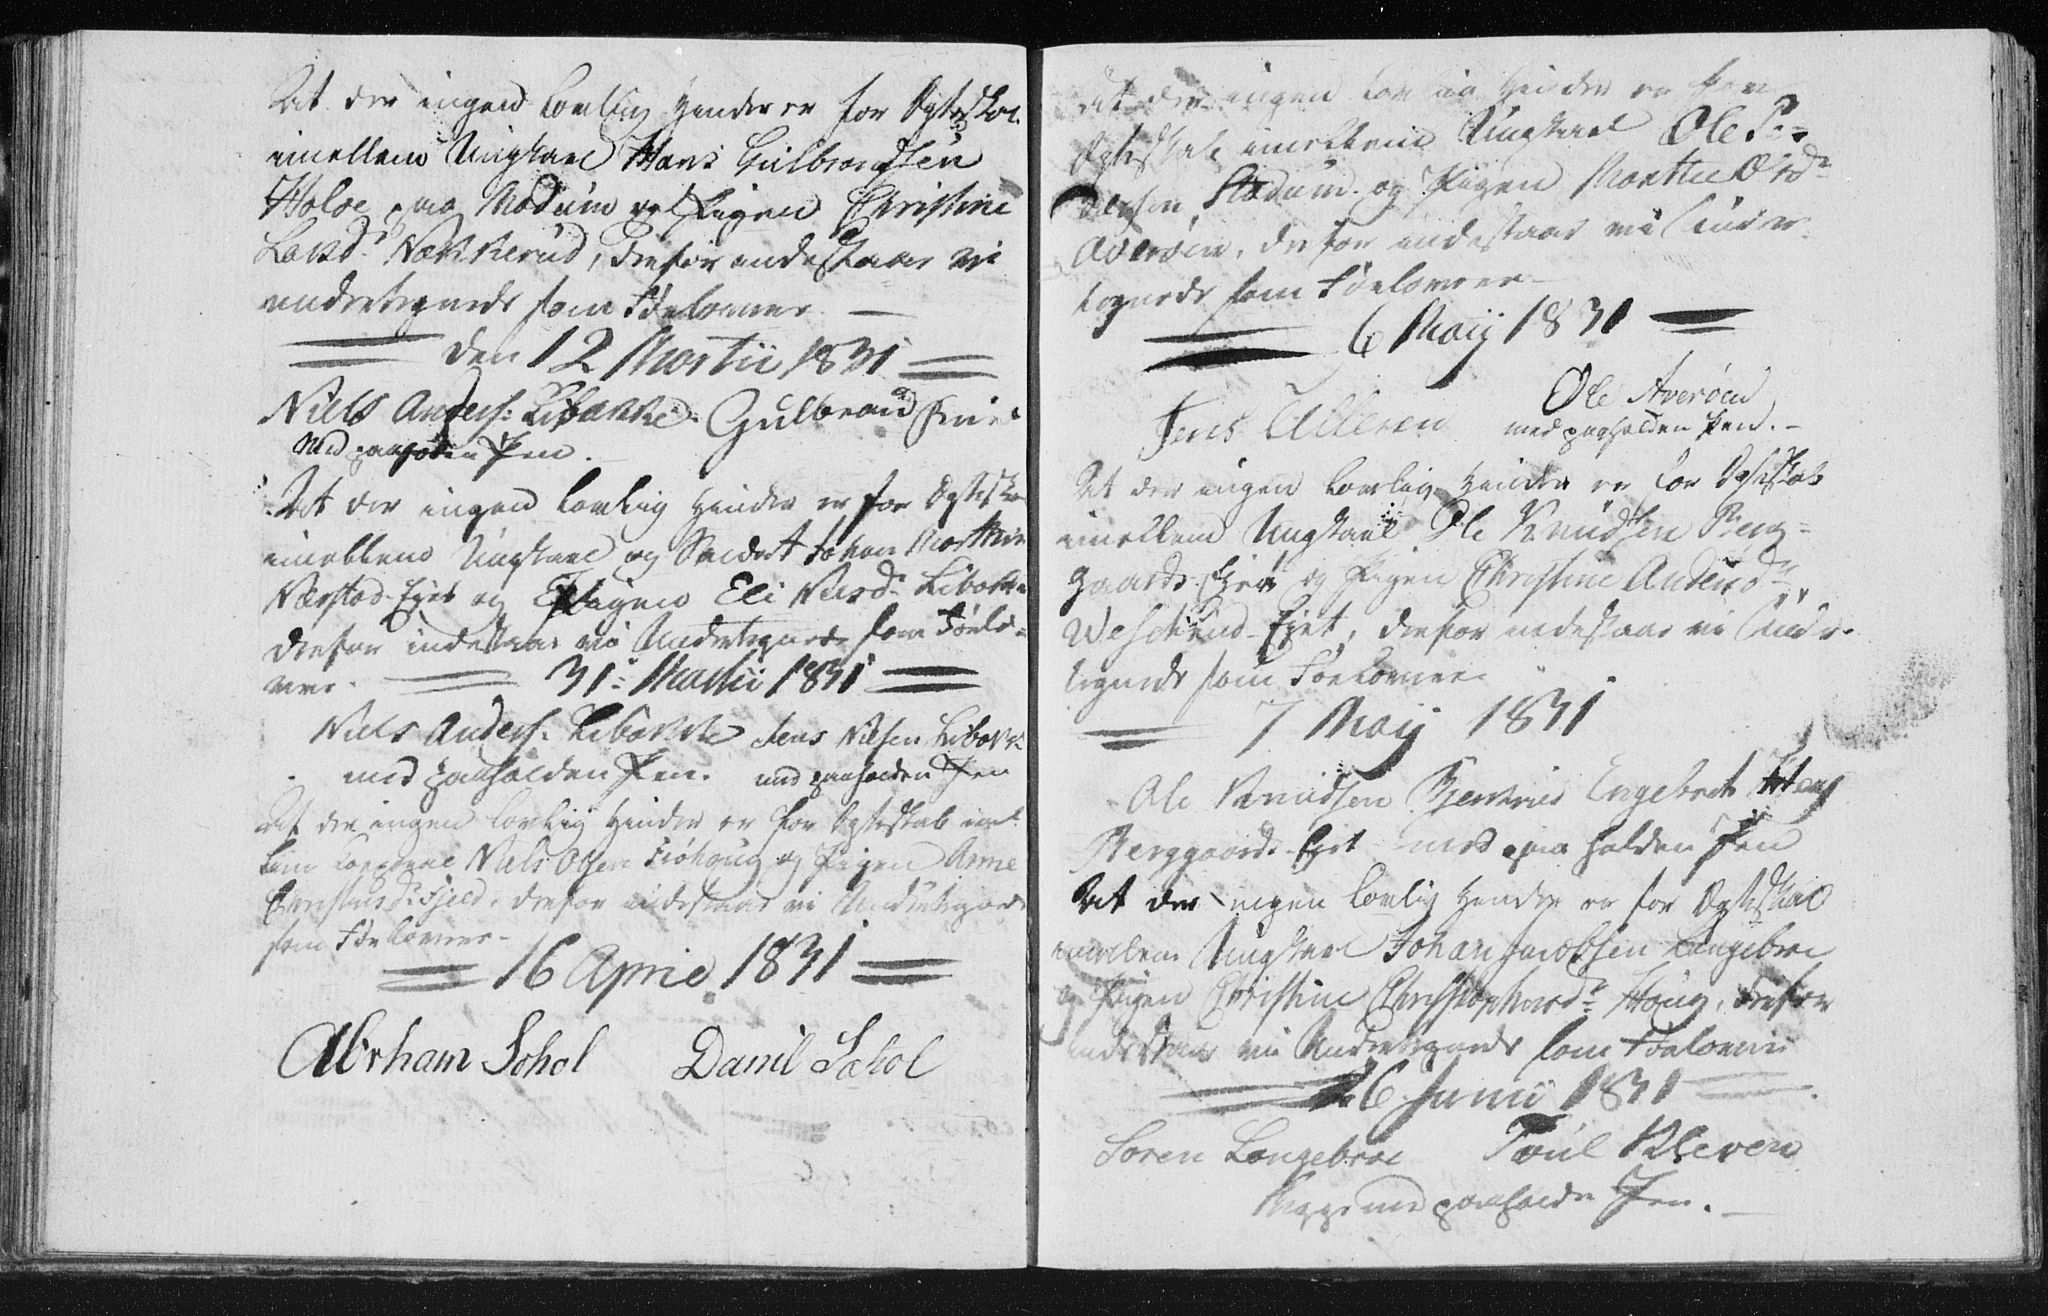 At der ingen lovlig Hinder er for Ægteskab
imellem Ungkarl Hans Gulbrandsen
Holoe paa Modum og Pigen Christine
Larsd: Nækkerud, derfor indestaar vi
undertegnede som Forlovere
den 12 Martii 1831
Niels Anders: Libække Gulbrand
Med paaholden Pen.
At der ingen lovlig Hinder er for Ægteska
imellem Ungkarl og Soldat Johan
Eiet og Pigen Eli Nielsd: Libække
derfor indestaar vi Undertegnede som Forlo-
vere.
31: Martii 1831
Niels Anders: Libække Jens Nilsen Libække
med paaholden Pen. med paaholden Pen
At der ingen lovlig Hinder er for Ægteskab imel
lem Niels Olsen og Pigen Anne
Fjeld, derfor indestaar vi Undertegnede
som Forlovere
16 April 1831
Abrham Sohol Danil Sohol
At der ingen lovlig Hinder er for
Ægteskab imellem Ungkarl Ole
og Pigen Marthe
Averøen, derfor indestaar vi Under-
tegnede som Forlovere
6 Maij 1831
Jens Ulleren Ole Averøen
med paaholden Pen.
At der ingen lovlig Hinder er for Ægteskab
imellem Ungkarl Ole Knudsen Berg-
gaards Eiet og Pigen Christine Andersd:
Eiet, derfor indestaar vi Under-
tegnede som Forlovere
7 Maij 1831
Ole Knudsen Engebret
Berggaards Eiet med paaholden Pen
At der ingen lovlig Hinder er for Ægteskab
imellem Ungkarl Johan Jacobsen Langebroe
og Pigen Christine Christophersd: Houg, derfor
indestaar vi Undertegnede som Forlovere
Junii 1831
Soren Langebroe Poul Kleven
med paaholden Pen.